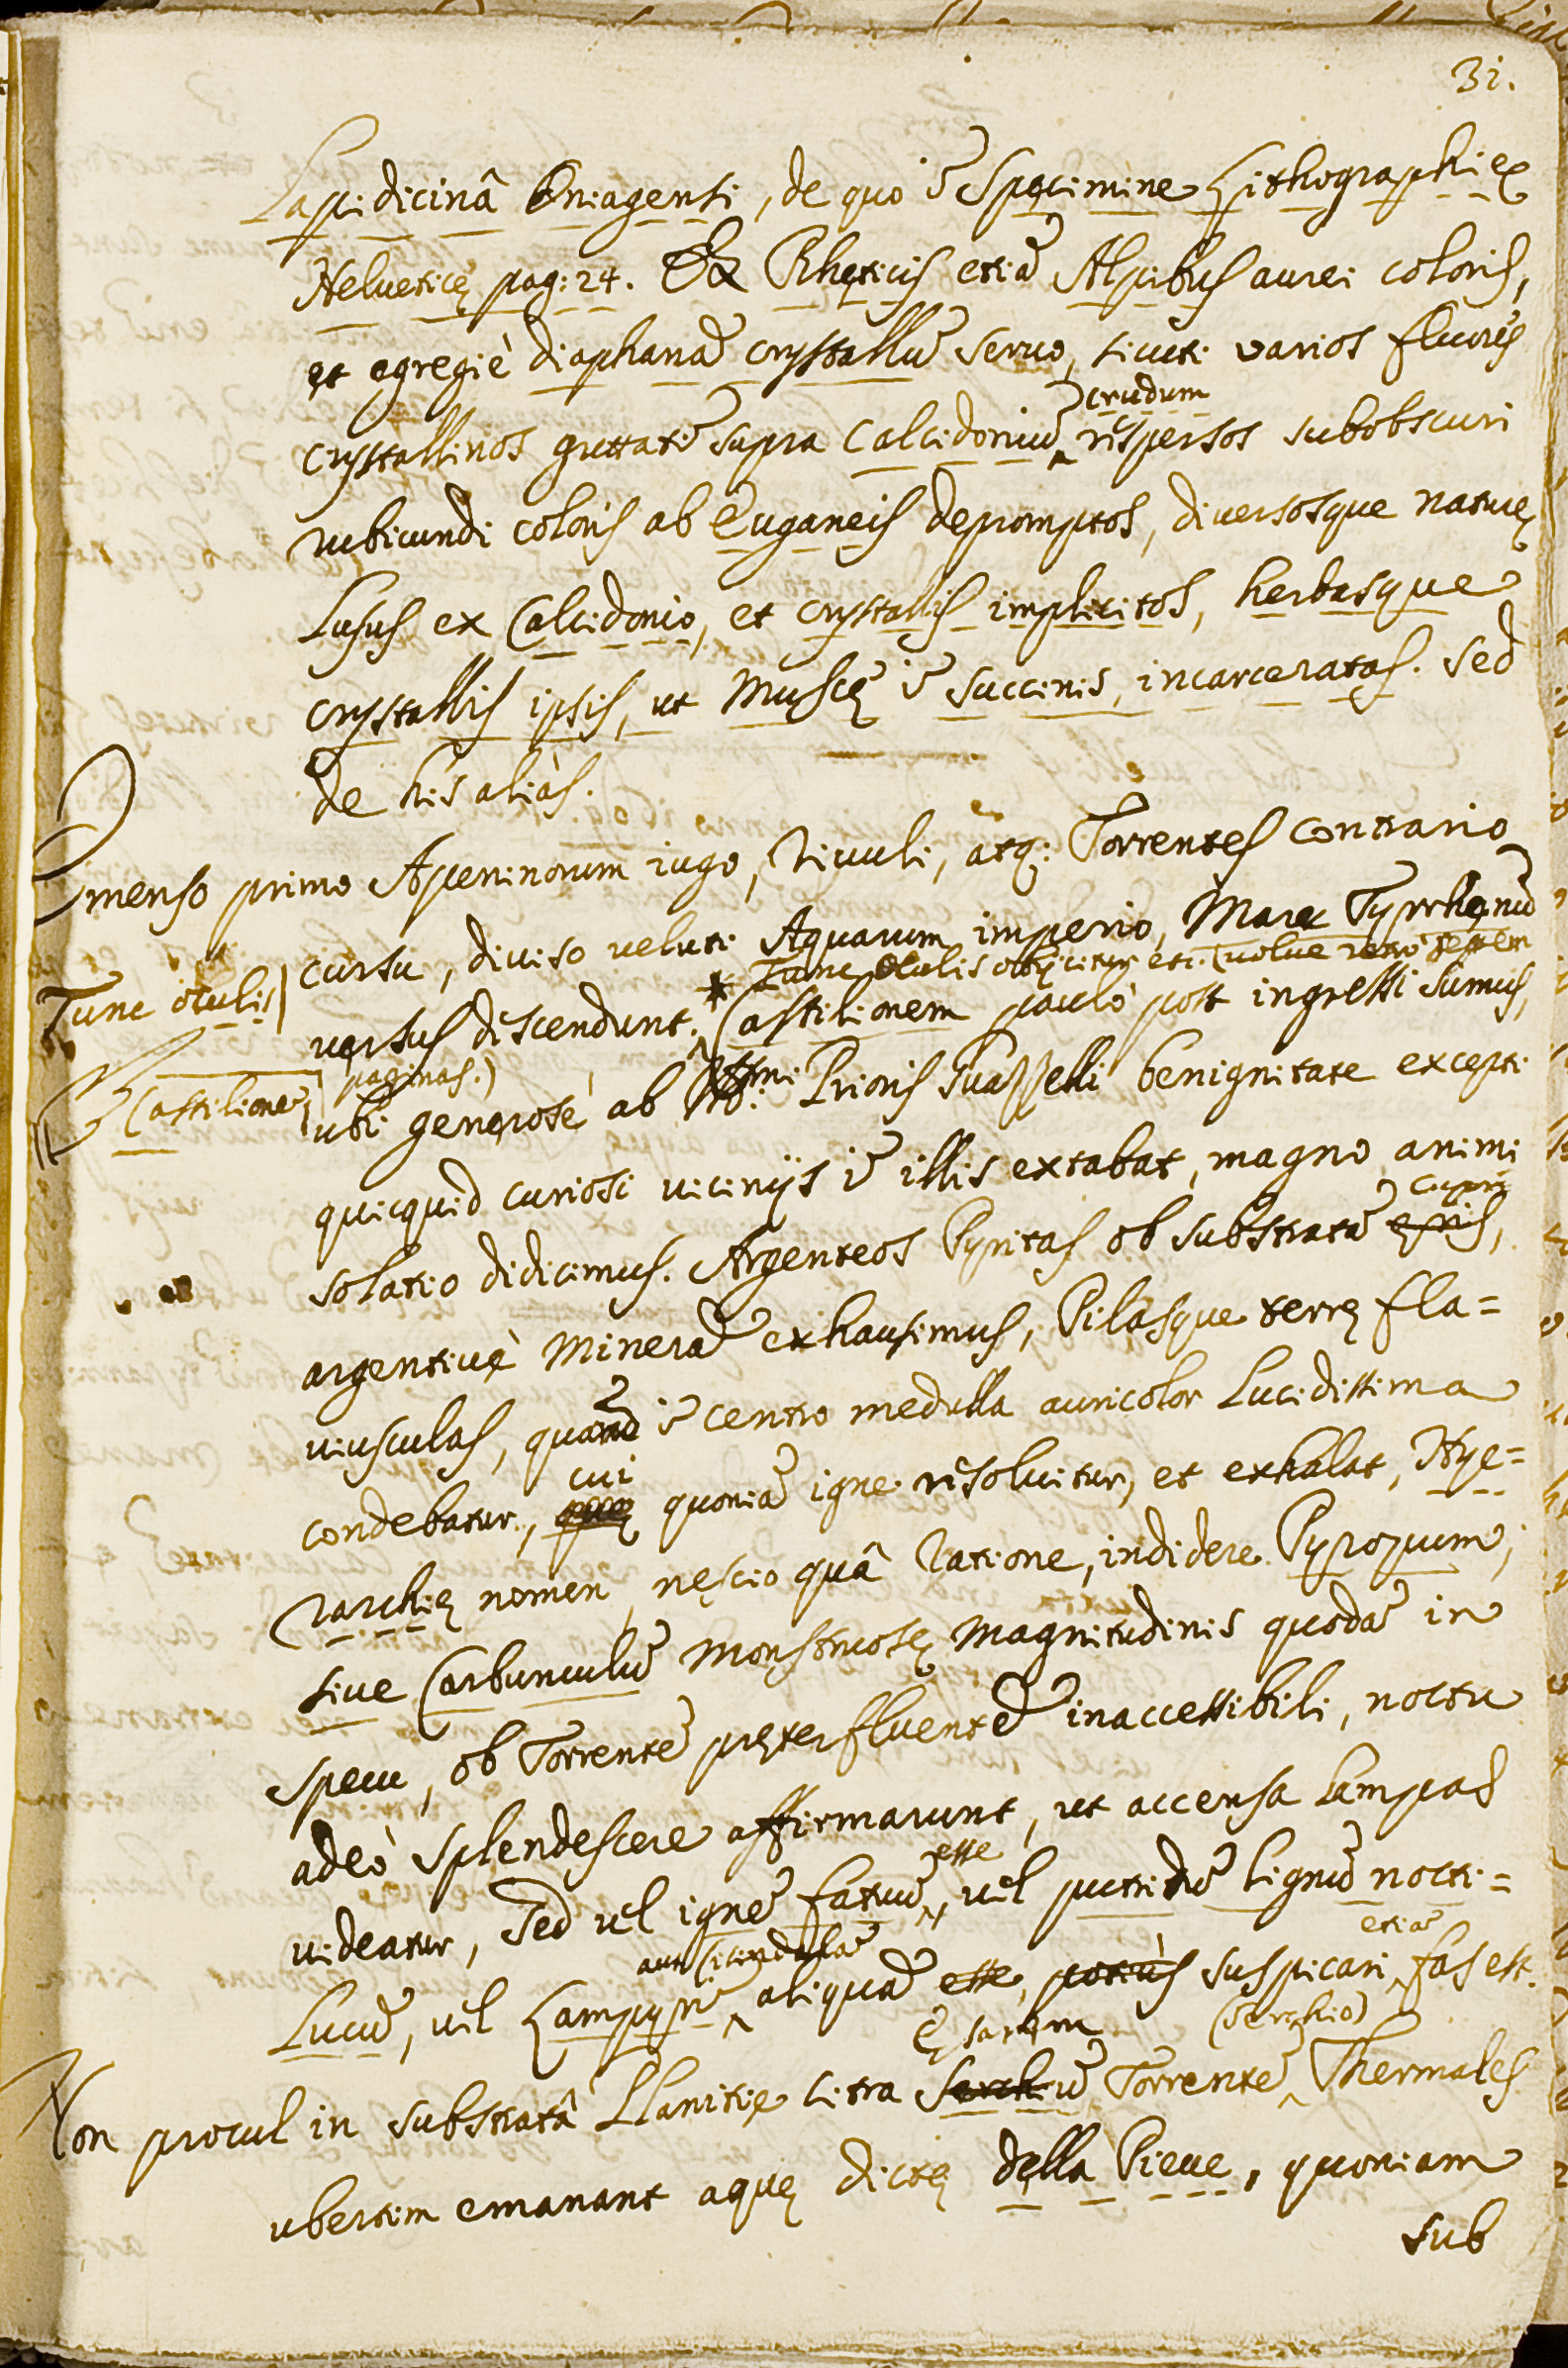 31.
Lapidicinâ Eniagensi, de quo ĩ Specimine Lithographiæ
Helueticę pag: 24. Ex Rhęticis etiã Alpibus aurei coloris,
et egregiè diaphanã crystallũ seruo, sicuti varios fluores
crudum
crystallinos guttatĩ supra Calcidoniũ ‸ rẽspersos subobscuri
rubicundi coloris ab Euganeis depromptos, diversosque naturę
Lusus ex Calcidonio, et crystallis implicitos, herbasque
crystallis ipsis, ut Muscę ĩ succinis, incarceratas. Sed
de his aliàs.
Emenso primo Apeninorum iugo, Riuuli, atq: Torrentes contrario
cursu, diuiso veluti Aquarum imperio, Mare Tyrrhenũ
* Tunc oculis obijcitur etc. (volue retrò septem
Tunc oculis
versus discendunt. ‸ Castilionem paulò post ingressi sumus,
paginas.)
Castilione
ubi generosè ab Prioris Suazzelli benignitate excepti
quicquid curiosi vicinijs ĩ illis extabat, magno animi
cupri
solatio didicimus. Argenteos Pyritas ob substratã ęris,
argentiuè Minerã exhausimus, Pilasque terrę fla=
viusculas, quarũ ĩ centro medulla auricolor Lucidissima
cui
condebatur, quę quoniã igne resoluitur, et exhalat, Hye=
rarchię nomen, nęscio quâ ratione, indidere. Pyropum,
siue Carbunculũ Monstruosę Magnitudinis quodã in
specu, ob Torrentẽ pręterfluentẽ inaccessibili, noctu
adeò splendescere affirmarunt, ut accensa Lampas
esse
videatur, Sed vel ignẽ fatuũ ‸, vel putridũ lignũ nocti=
aut Cicindelã etiã
Lucũ, vel Lampyrĩ ‸ aliquã esse, potiùs suspicari ‸ fas est.
Ęsarum (Serchio)
Non procul in substratâ Planitie citra Serchiũ Torrentẽ ‸ Thermales
ubertim emanant aquę dictę della Pieue, quoniam
sub